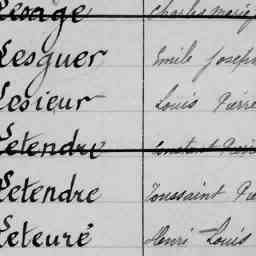 Lesage Charles Marie
Lesguer Emile Joseph
Lesieur Louis Pierre
Letendre Constant Pierre
Letendre Toussaint Pie
Leteuré Henri Louis